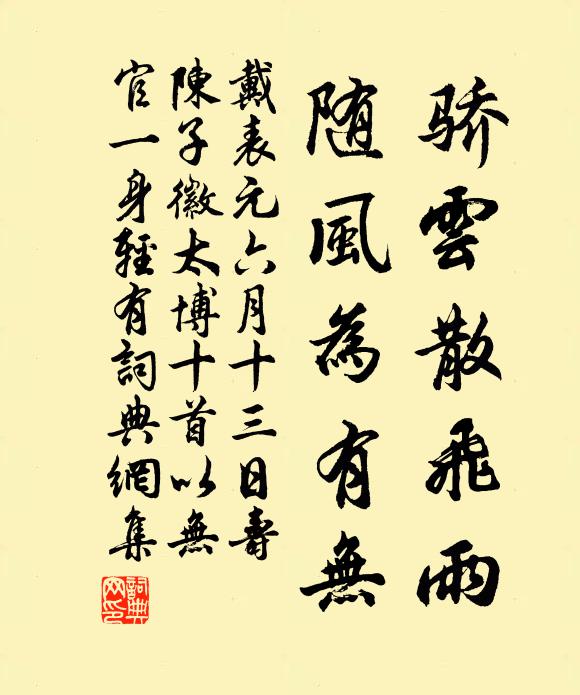 骄雲散飛雨
随風為有無
戴表元六月十三日壽
陳子徽太博十首以無
官一身輕有詞典網集
詞典網印